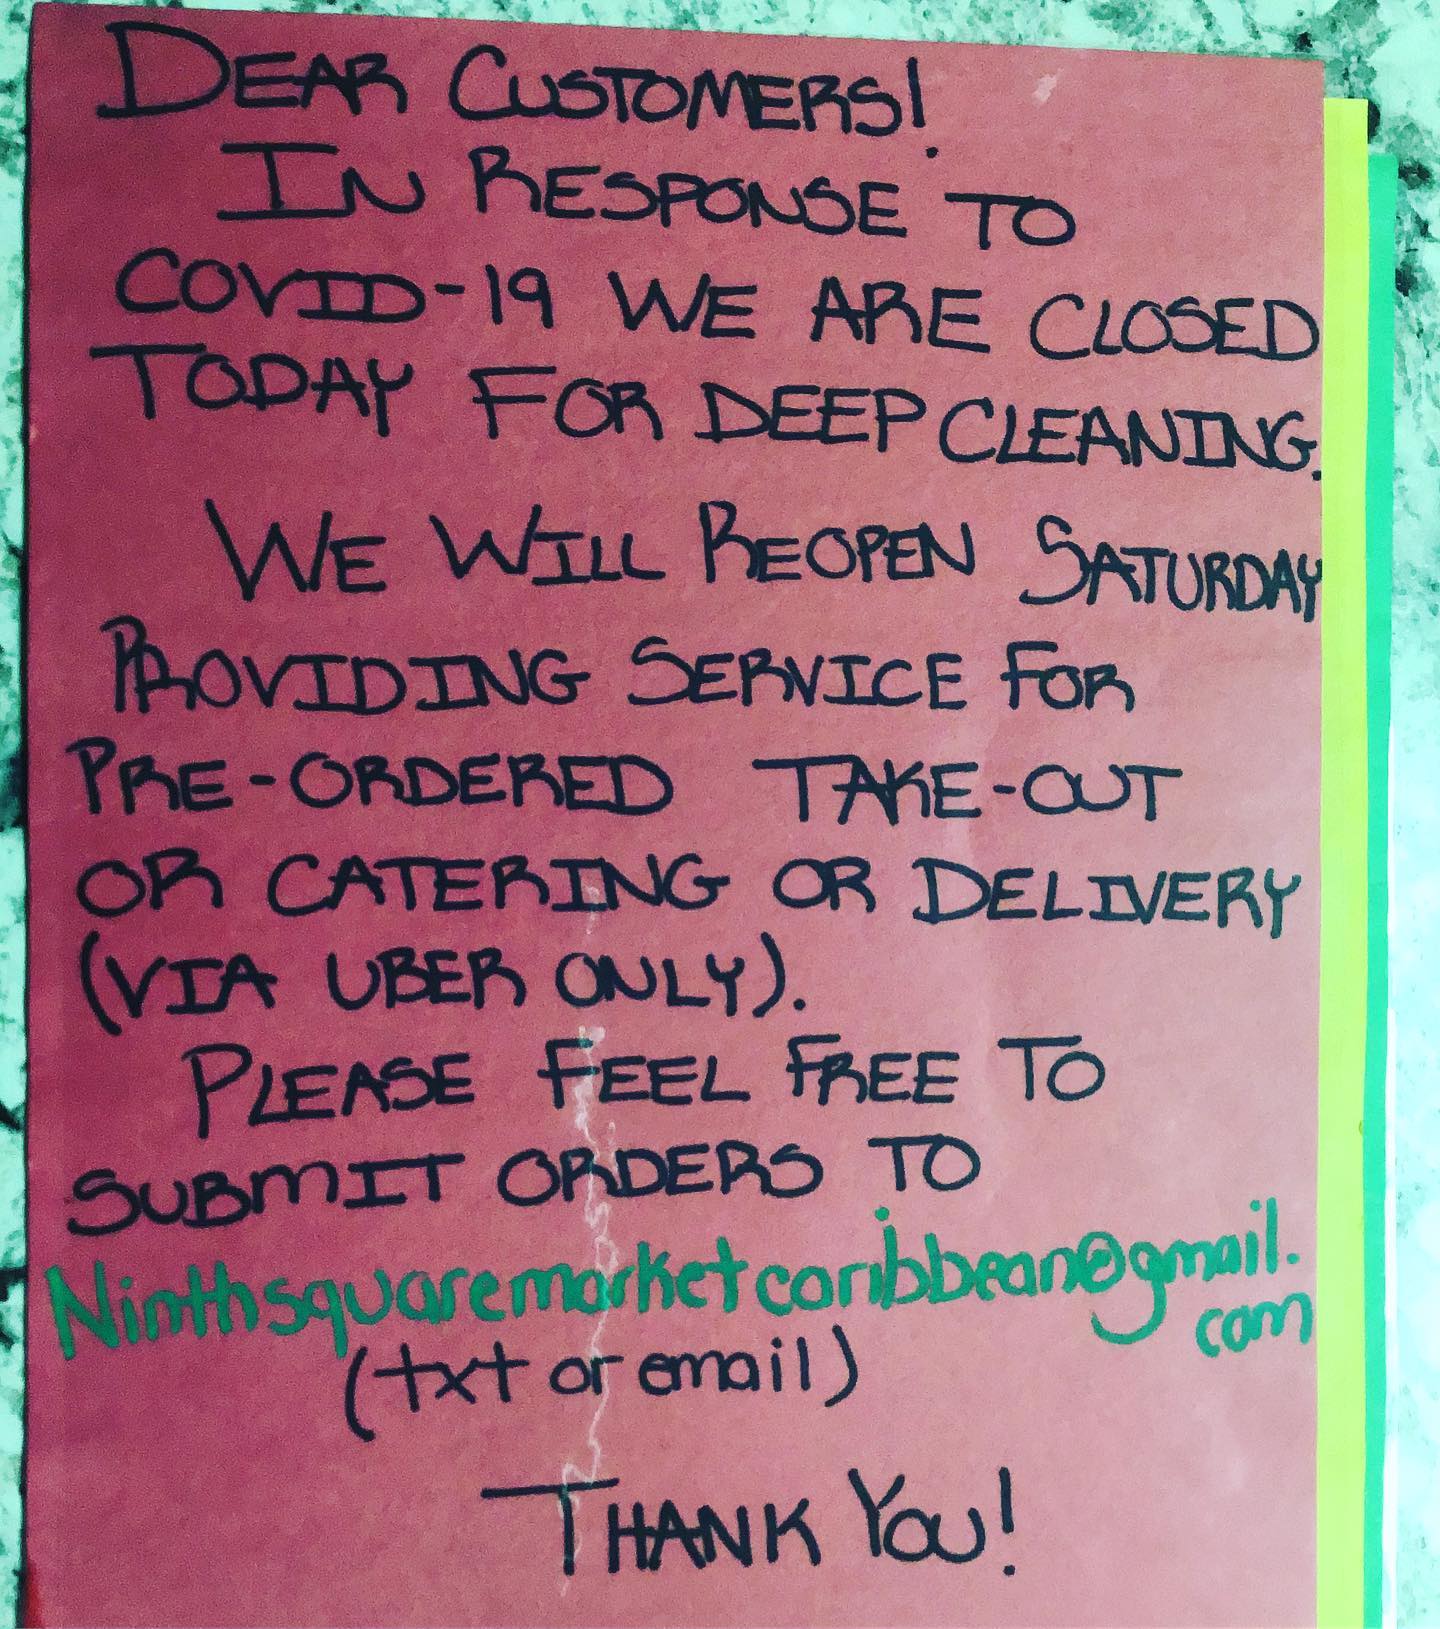 DEAR CUSTOMERS!
IN RESPONSE TO
COVID-19 WE ARE CLOSED
TODAY FOR DEEP CLEANING.
WE WILL REOPEN SATURDAY
PROVIDING SERVICE FOR
PRE-ORDERED TAKE-OUT
OR CATERING OR DELIVERY
(VIA UBER ONLY).
PLEASE FEEL FREE TO
SUBMIT ORDERS TO
Ninthsquaremarketcaribbean@gmail.
com
(txt or email)
THANK YOU!